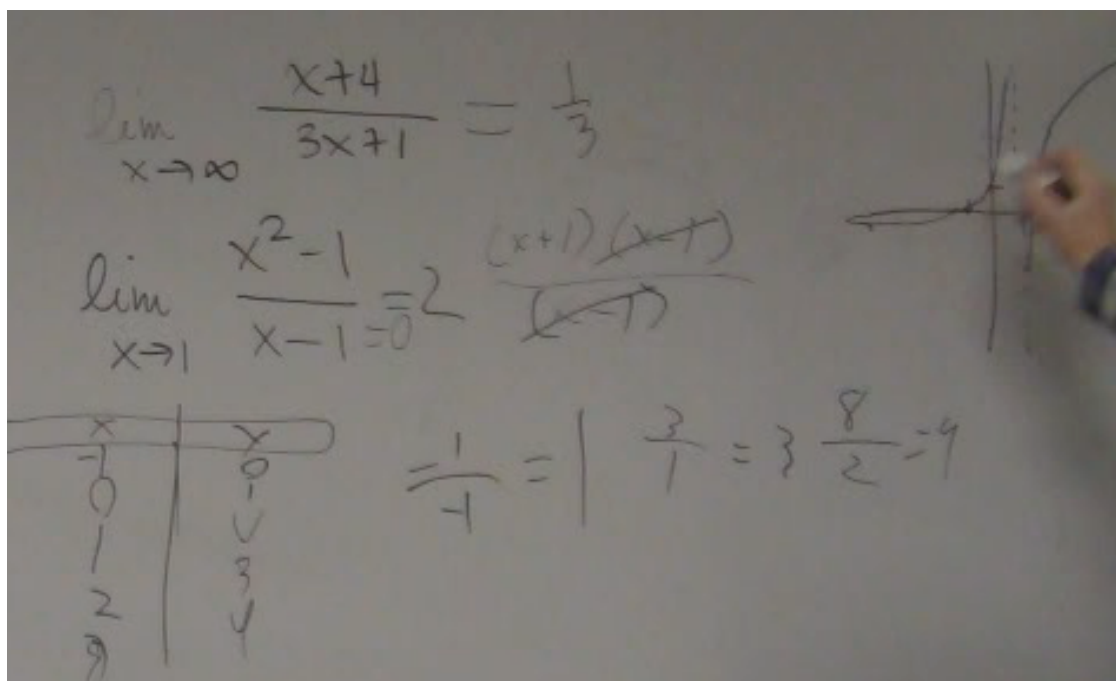 lim x→∞ x+4 / 3x+1 = 1/3
lim x→1 x²-1 / x-1 =0 =2 (x+1)(x-1) / (x-1)
x y
-1 0
0 1
1 U
2 3
3 4
-1/-1 = 1 3/1 = 3 8/2 =4